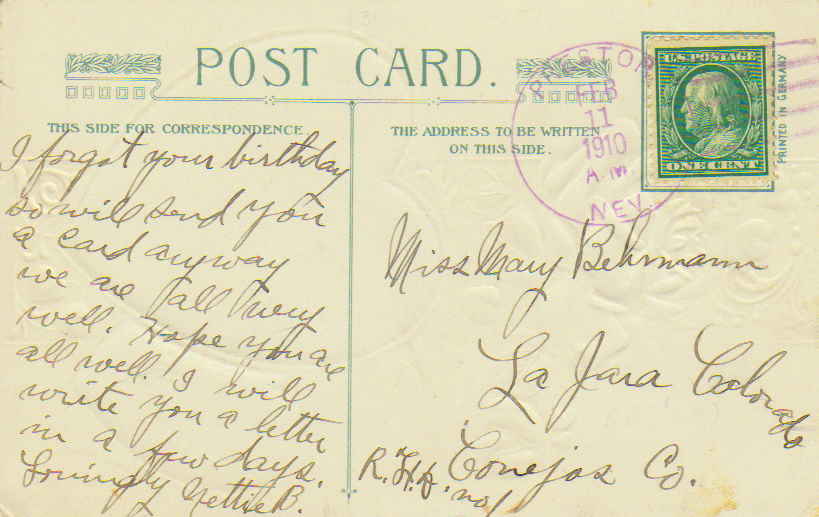 POST CARD.
THIS SIDE FOR CORRESPONDENCE
I forgot your birthday
so will send you
a card anyway
we are all very
well. Hope you are
all well. I will
write you a letter
in a few days.
Lovingly Nettie B.
THE ADDRESS TO BE WRITTEN
ON THIS SIDE.
PRESTON
FEB
11
1910
A.M
NEV.
U.S. POSTAGE
ONE CENT
PRINTED IN GERMANY
Miss Mary Behrmann
La Jara Colorado
Conejos Co.
no1